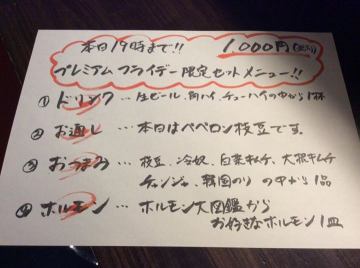 本日19時まで!! 1000円(税込)
プレミアムフライデー限定セットメニュー!!
① ドリンク … 生ビール、角ハイ、チューハイの中から1杯
② お通し … 本日はペペロン枝豆です。
③ おつまみ … 枝豆、冷奴、白菜キムチ、大根キムチ
チャンジャ、韓国のりの中から1品
④ ホルモン … ホルモン大図鑑から
お好きなホルモン1皿